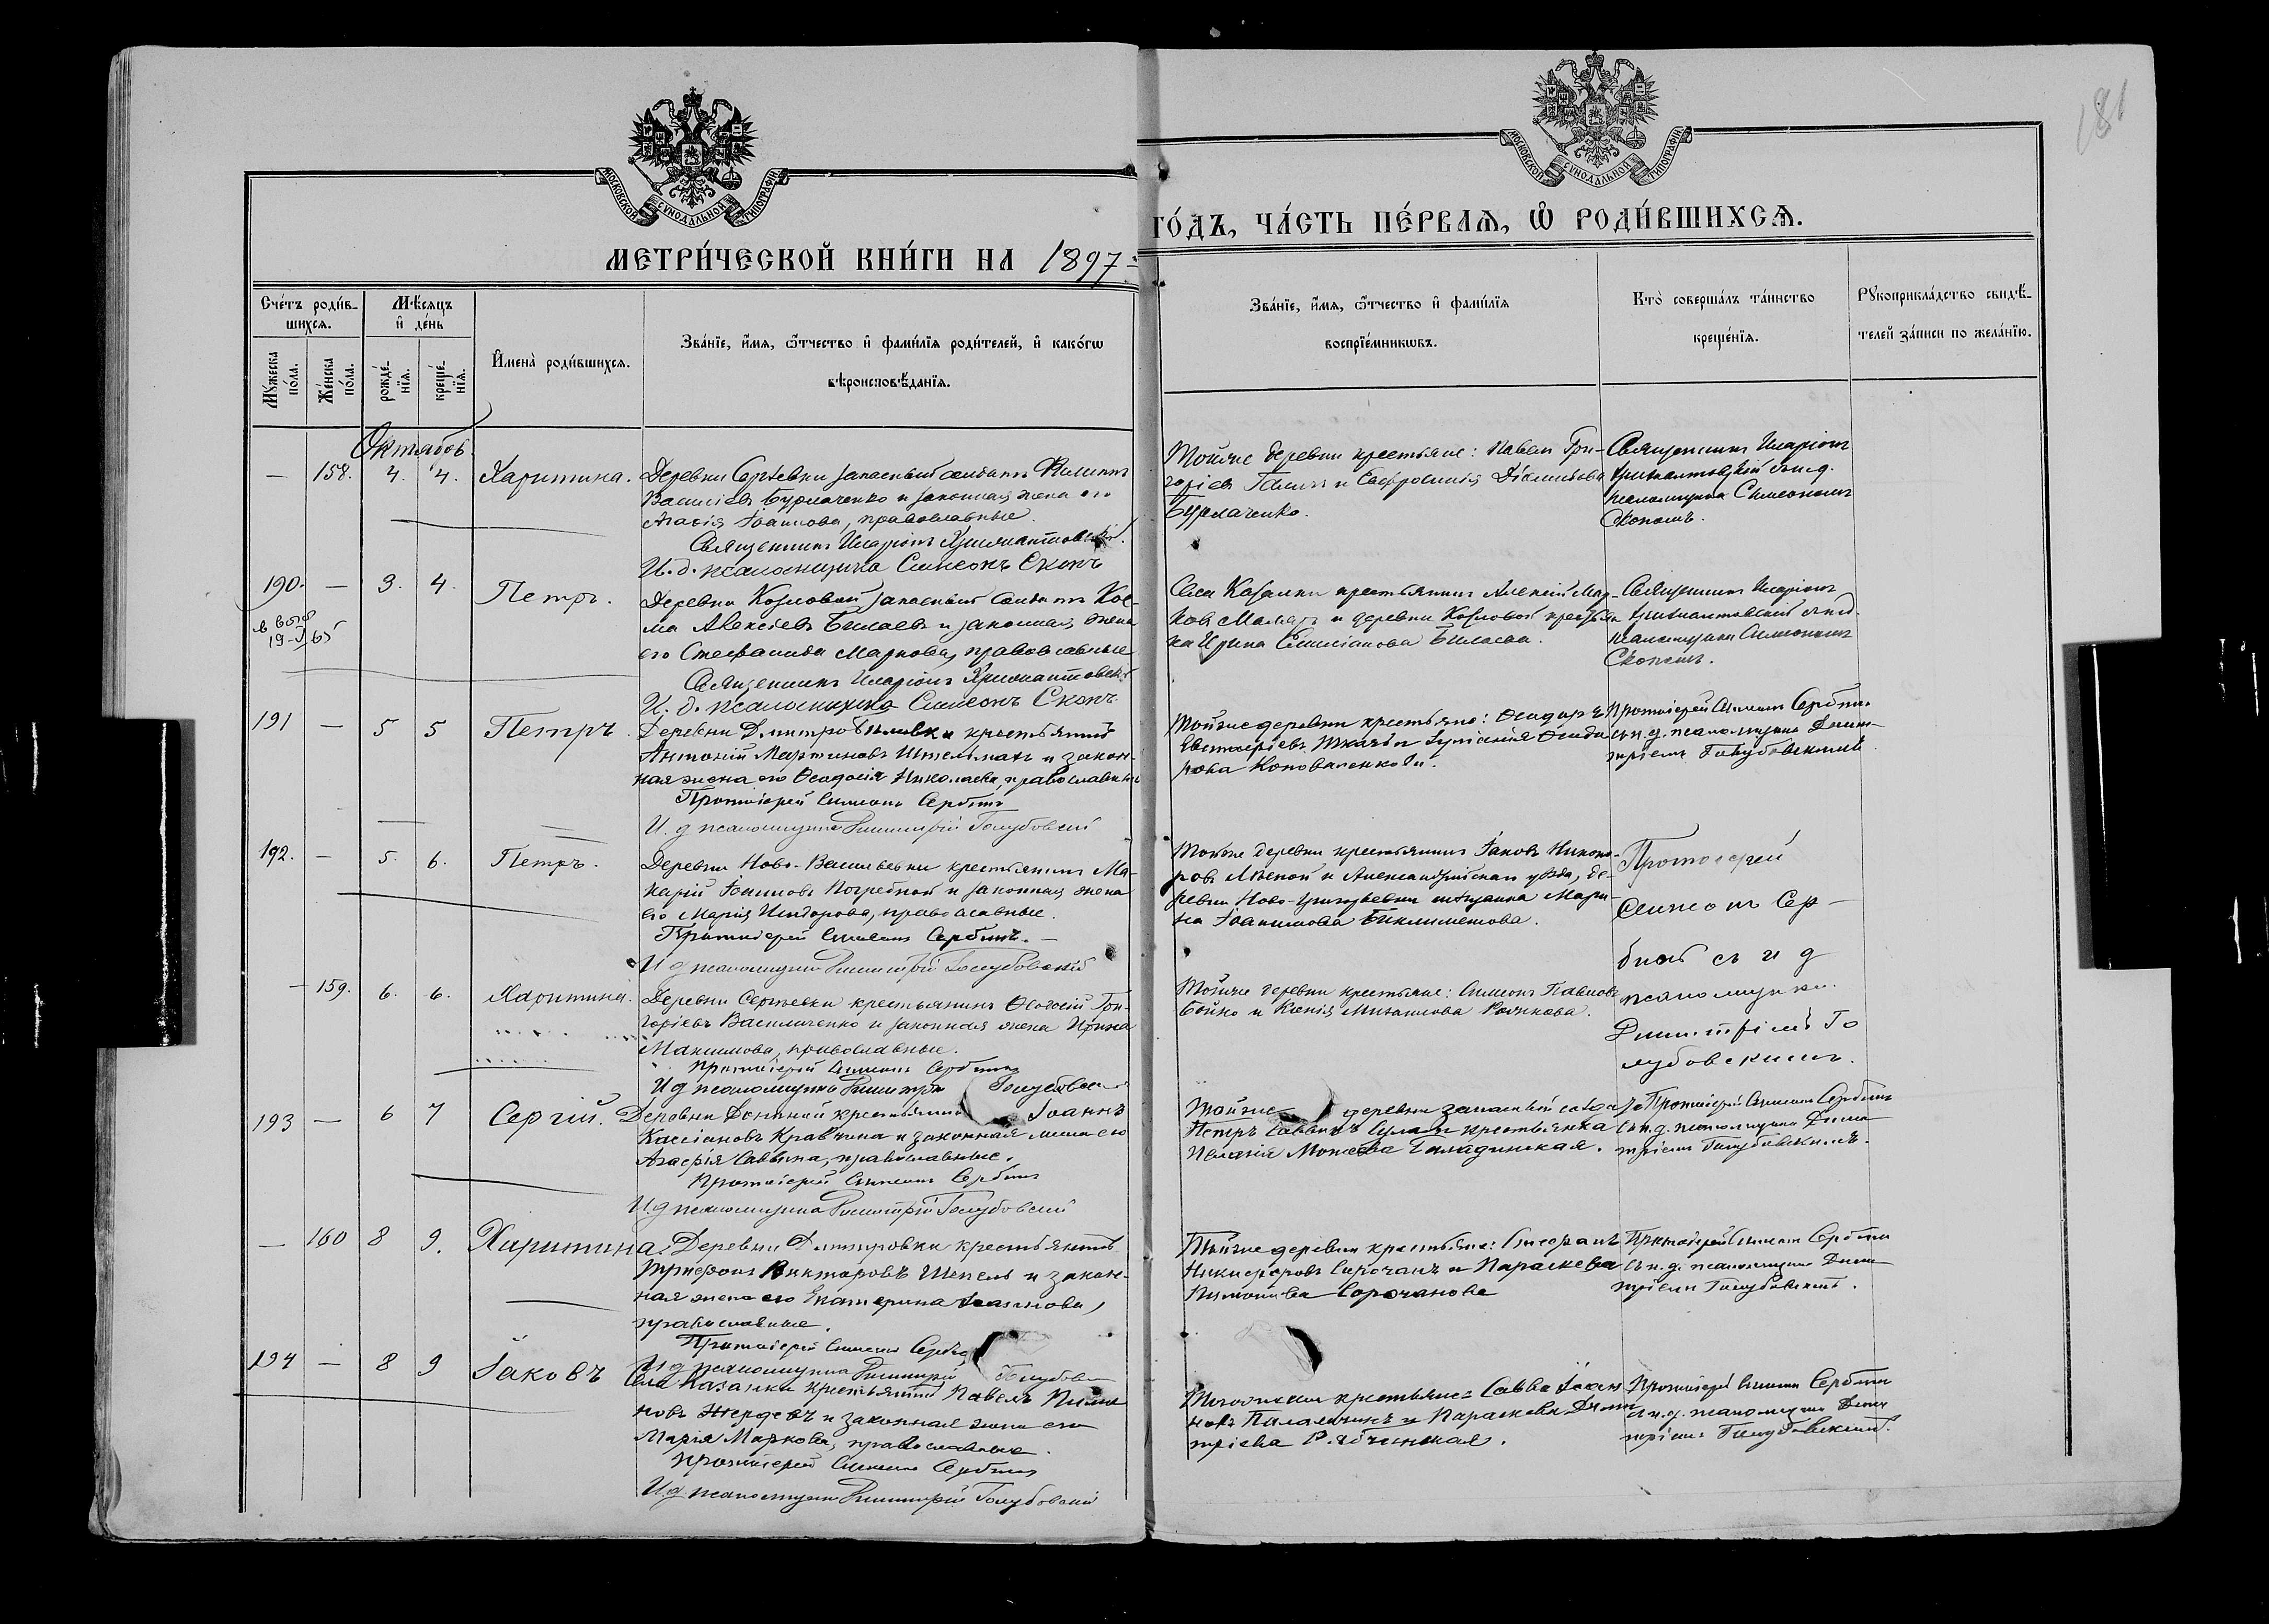 181
МОСКОВСКОЙ СУНОДАЛЬНОЙ ТИПОГРАФІИ
МОСКОВСКОЙ СУНОДАЛЬНОЙ ТИПОГРАФІИ
МЕТРИ́ЧЕСКОЙ КНИ́ГИ НА 1897
ГО́ДЪ, ЧА́СТЬ ПЕ́РВАѦ, Ѡ҆ РОДИ́ВШИХСѦ.
Сче́тъ роди́в-
шихся.
Мѣ́сяцъ
и҆ де́нь
Мꙋ́жеска
по́ла.
Же́нска
по́ла.
рожде́-
нїя.
креще́-
нїя.
И҆мена̀ роди́вшихся.
Зва́нїе, и҆́мя, ѻ҆́тчество и҆ фами́лїя роди́телей, и҆ како́гѡ
вѣроисповѣ́данїя.
Зва́нїе, и҆́мя, ѻ҆́тчество и҆ фами́лїя
воспрїе́мникѡвъ.
Кто̀ соверша́лъ та́инство
креще́нїя.
Рꙋкоприкла́дство свидѣ́-
телей за́писи по жела́нїю.
Октябрь
— 158. 4. 4. Харитина. Деревни Сергѣевки запасный солдатъ Филиппъ
Василіевъ Бурлаченко и законная жена его
Агафія Іоаннова, православные.
Священникъ Иларіонъ
И. д. псаломщика Симеонъ Скопъ
Тойже деревни крестьяне: Павелъ Гри-
горіевъ и Евфросинія
Бурлаченко.
Священникъ Иларіонъ
псаломщика Симеономъ
Скопомъ.
190. — 3. 4. Петръ. Деревни Козловой запасный солдатъ Кос-
ма Алексіевъ Билаевъ и законная жена
его Стефанида Маркова, православные
Священникъ Иларіонъ
И. д. псаломщика Симеонъ Скопъ
Села Казанки крестьянинъ Алексій Мар-
ковъ и деревни Козловой крестьян
ка Ирина Билаева.
Священникъ Иларіонъ
псаломщика Симеономъ
Скопомъ.
191 — 5 5 Петръ. Деревни крестьянинъ
Антоній Мартиновъ и закон-
ная жена его Ѳеодосія Николаева, православные
Протоіерей Симеонъ Сербинъ
И. д псаломщика Димитрій Голубовскій
Тойже деревни крестьяне: Ѳеодоръ
Евстафіевъ Ткачъ и Ѳеодо
рова Коноваленкова.
Протоіерей Симеонъ Сербинъ
съ и. д. псаломщика Дими-
тріемъ Голубовскимъ
192. — 5. 6. Петръ. Деревни Ново-Васильевки крестьянинъ Ма-
карій Іоанновъ Погребной и законная жена
его Марія Исидорова, православные.
Протоіерей Симеонъ Сербинъ. —
И д псаломщика Димитрій Голубовскій
Тойже деревни крестьянинъ Іаковъ Никано-
ровъ и Александрійскаго уѣзда, де-
ревни мѣщанка Мари-
на Іоакимова
Протоіерей
Симеонъ Сер-
бинъ съ и д
псаломщика
Димитріемъ Го
лубовскимъ.
— 159. 6. 6. Харитина. Деревни Сергѣевки крестьянинъ Ѳеодосій Гри-
горіевъ Василиченко и законная жена Ирина
Максимова, православные.
Протоіерей Симеонъ Сербинъ
И д псаломщика Димитрій Голубовскій
Тойже деревни крестьяне: Симеонъ Павловъ
Бойко и Ксенія Михаилова
193 — 6 7 Сергій. Деревни крестьянинъ Іоаннъ
Кассіановъ Кравчина и законная жена его
Агафія Саввина, православные.
Протоіерей Симеонъ Сербинъ
И. д псаломщика Димитрій Голубовскій
Тойже деревни запасной солдатъ
Петръ Саввинъ и крестьянка
Пелагія
Протоіерей Симеонъ Сербинъ
съ и. д. псаломщика Дими
тріемъ Голубовскимъ.
— 160 8 9. Харитина. Деревни Дмитровки крестьянинъ
Трифонъ Викторовъ Шепель и закон-
ная жена его Екатерина Іоаннова,
православные.
Протоіерей Симеонъ Сербинъ
И д псаломщика Димитрій Голубовс
Тойже деревни крестьяне: Стефанъ
Никифоровъ Сорочанъ и Параскева
Сорочанова
Протоіерей Симеонъ Сербинъ
съ и. д. псаломщика Дими-
тріемъ Голубовскимъ.
194 — 8 9 Іаковъ Села Казанки крестьянинъ Павелъ
новъ и законная жена его
Марія Маркова, православные.
Протоіерей Симеонъ Сербинъ
И. д псаломщика Димитрій Голубовскій
крестьяне: Савва Іоан
новъ и Параскева Дими
тріева
Протоіерей Симеонъ Сербинъ
съ и. д. псаломщика Дими
тріемъ Голубовскимъ.